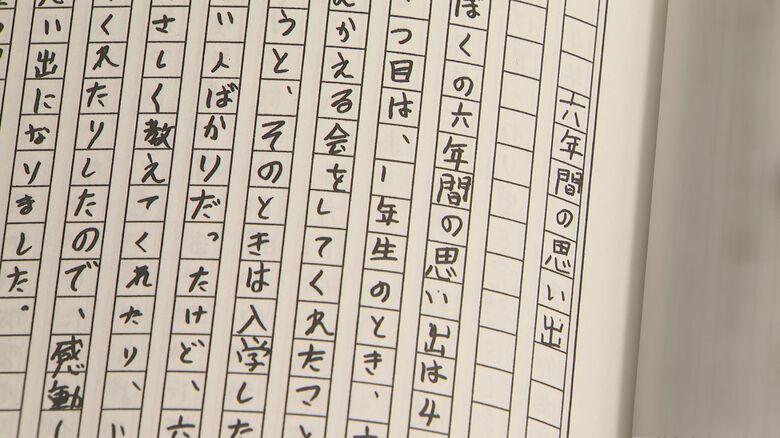 六年間の思い出
ぼくの六年間の思い出は4
つ目は、1年生のとき、
むかえる会をしてくれたこ
うと、そのときは入学した
い人ばかりだった。だけど、六
さしく教えてくれたり、い
くれたりしたので、感動し
い出になりました。